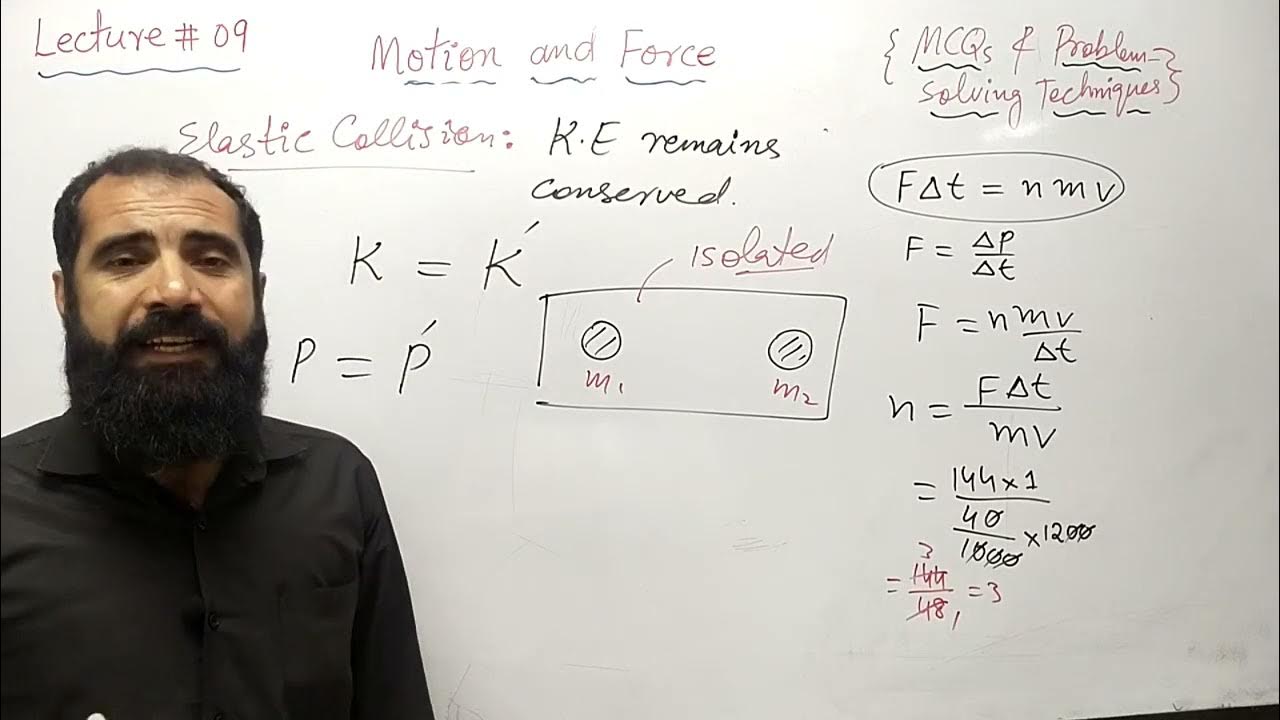 Lecture # 09
Motion and Force
{ MCQs & Problem-
Solving Techniques }
Elastic Collision: K.E remains
conserved.
K = K′
P = P′
isolated
m₁
m₂
FΔt = n m v
F = ΔP/Δt
F = n mv/Δt
n = FΔt/mv
= 144×1 / 40/1000 ×1200
= 144/48 = 3
3
1